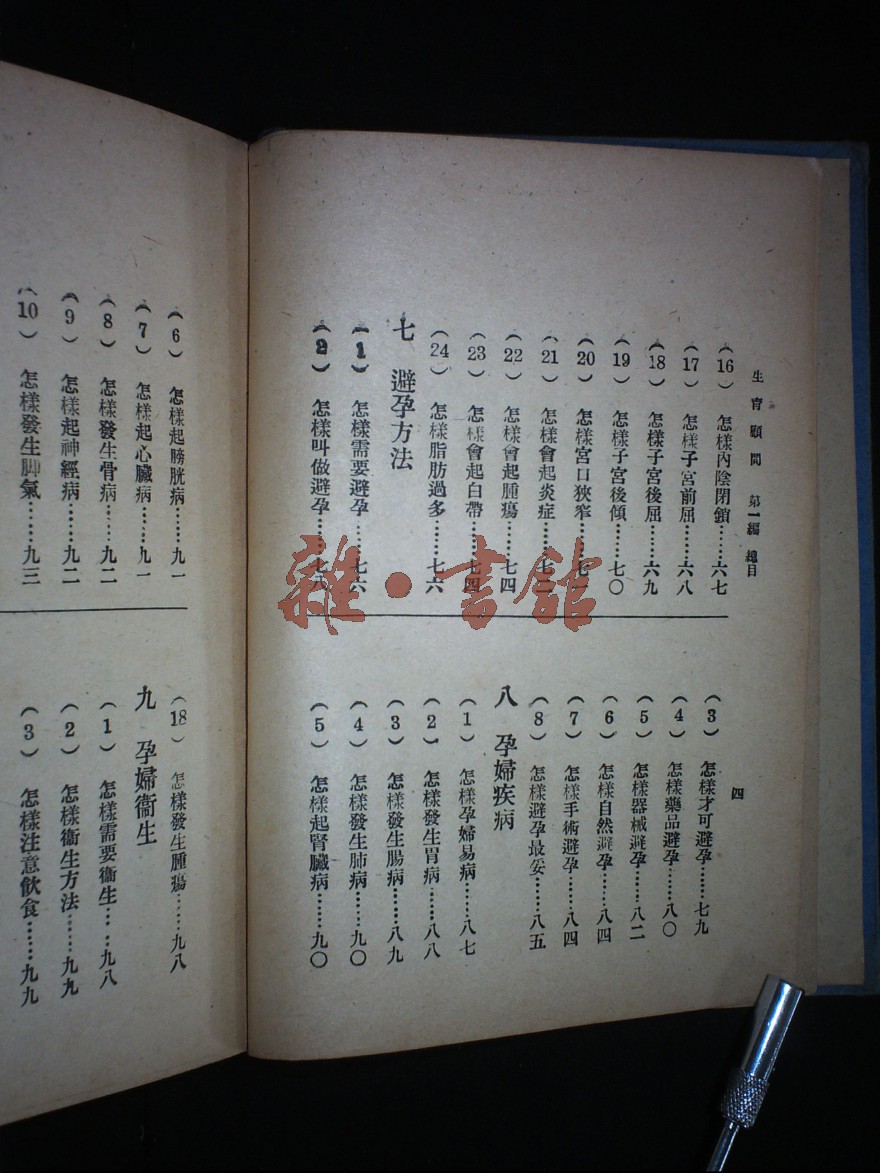 生育顧問　第一編　總目
四
（16）　怎樣內陰閉鎖……六七
（17）　怎樣子宮前屈……六八
（18）　怎樣子宮後屈……六九
（19）　怎樣子宮後傾……七〇
（20）　怎樣宮口狹窄……七一
（21）　怎樣會起炎症……七二
（22）　怎樣會起腫瘍……七四
（23）　怎樣會起白帶……七四
（24）　怎樣脂肪過多……七六
七　避孕方法
（1）　怎樣需要避孕……七六
（2）　怎樣叫做避孕……七八
（3）　怎樣才可避孕……七九
（4）　怎樣藥品避孕……八〇
（5）　怎樣器械避孕……八二
（6）　怎樣自然避孕……八四
（7）　怎樣手術避孕……八四
（8）　怎樣避孕最妥……八五
八　孕婦疾病
（1）　怎樣孕婦易病……八七
（2）　怎樣發生胃病……八八
（3）　怎樣發生腸病……八九
（4）　怎樣發生肺病……九〇
（5）　怎樣起腎臟病……九〇
（6）　怎樣起膀胱病……九一
（7）　怎樣起心臟病……九一
（8）　怎樣發生骨病……九二
（9）　怎樣起神經病……九二
（10）　怎樣發生脚氣……九三
（18）　怎樣發生腫瘍……九八
九　孕婦衞生
（1）　怎樣需要衞生……九八
（2）　怎樣衞生方法……九九
（3）　怎樣注意飲食……九九
雜·書館